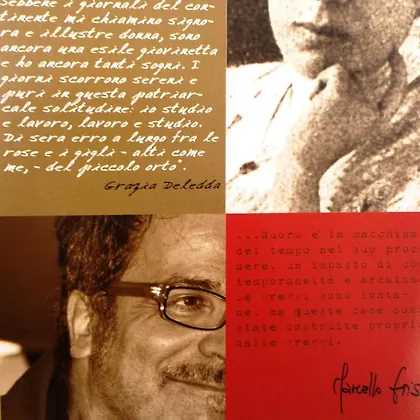 Sebbene i giornali del con-
tinente mi chiamino signo-
ra e illustre donna, sono
ancora una esile giovinetta
e ho ancora tanti sogni. I
giorni scorrono sereni e
puri in questa patriar-
cale solitudine: io studio
e lavoro, lavoro e studio.
Di sera erro a lungo fra le
rose e i gigli - alti come
me, - del piccolo orto".
Grazia Deledda
...Nuoro è la macchina
del tempo nel suo proc
dere. un impasto di co
temporaneità e arcaism
Le greggi sono lonta-
ne. ma queste case son
state costruite propri
dalle greggi.
Marcello Fris